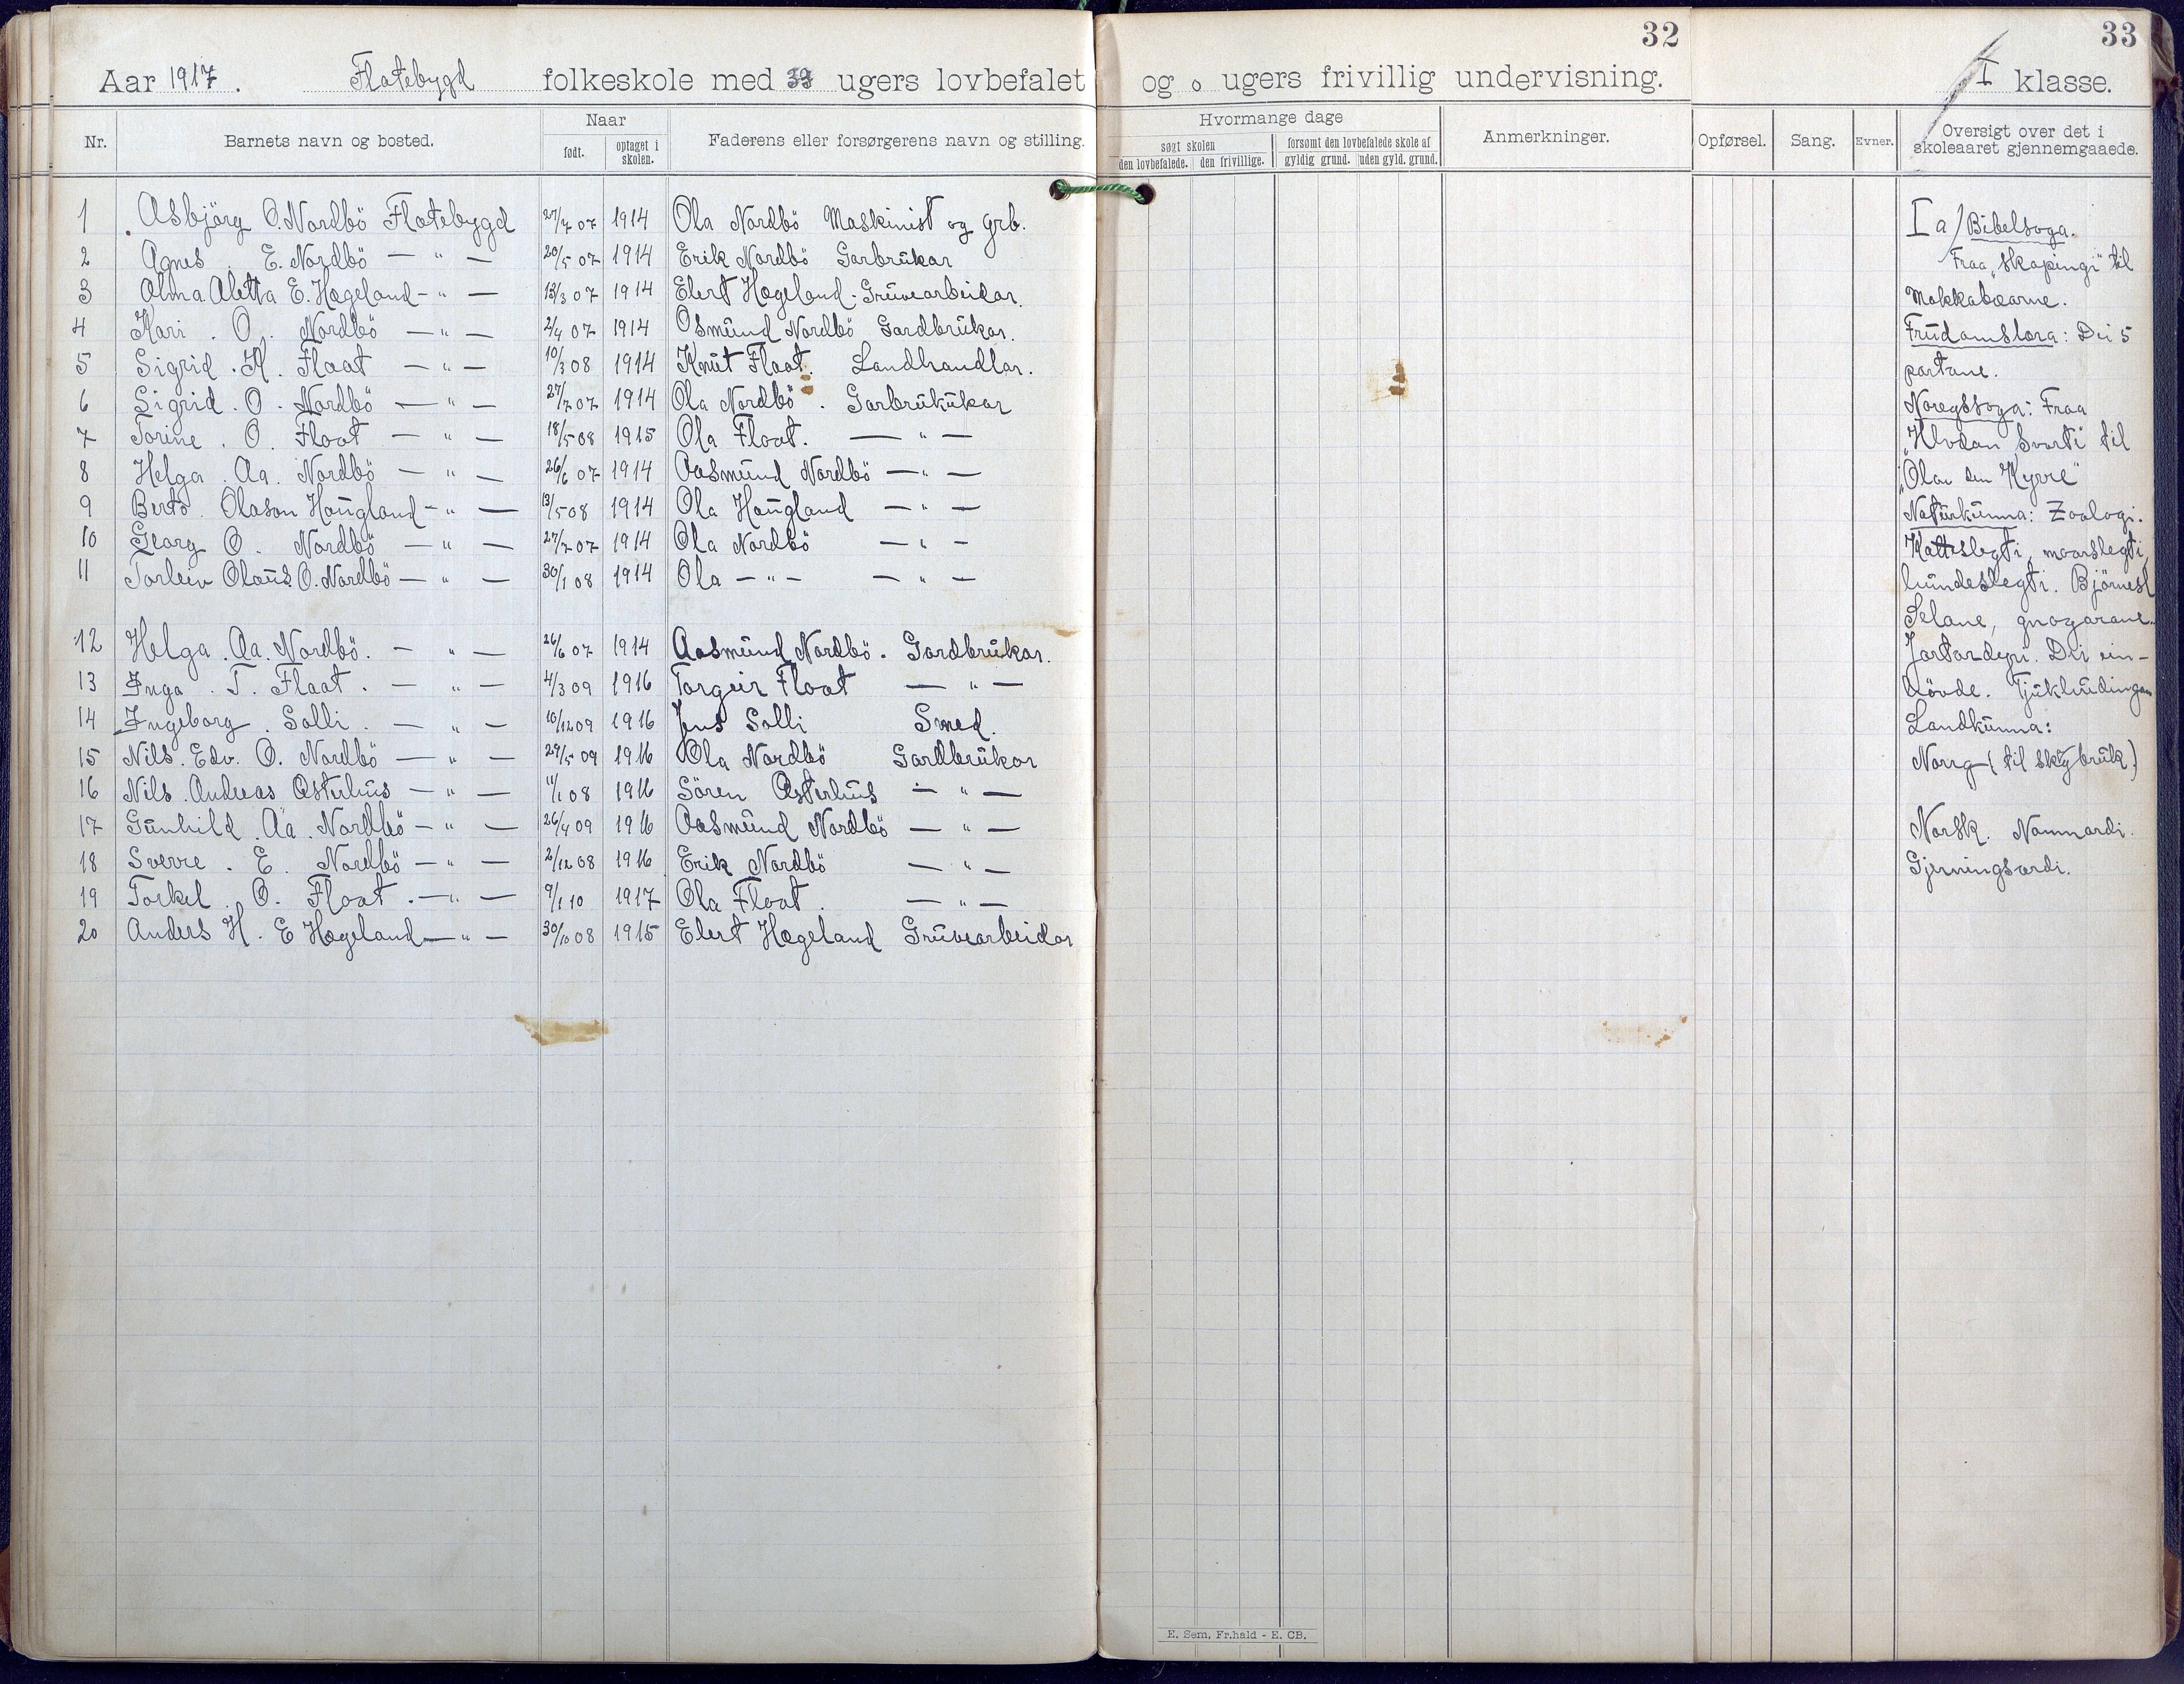 32
33
Aar 1917. Flatebygd folkeskole med ugers lovbefalet og 0 ugers frivillig undervisning. I klasse.
Nr. Barnets navn og bosted. Naar født. optaget i skolen. Faderens eller forsørgerens navn og stilling. Hvormange dage søgt skolen den lovbefalede. den frivillige. forsømt den lovbefalede skole af gyldig grund. uden gyld. grund. Anmerkninger. Opførsel. Sang. Evner. Oversigt over det i skoleaaret gjennemgaaede.
1 Asbjörg O. Nordbö Flatebygd 27/7 07 1914 Ola Nordbö Maskinist og grb.
2 Agnes E. Nordbö — " — 20/5 07 1914 Erik Nordbö Garbrukar
3 Alma Aletta E. Hægeland - " — 13/3 07 1914 Elert Hægeland - Gruvearbeidar.
4 Kari . O. Nordbö — " — 2/4 07 1914 Osmund Nordbö Gardbrukar.
5 Sigrid . K. Flaat — " — 10/3 08 1914 Knut Flaat. Landhandlar.
6 Sigrid . O . Nordbö — " — 27/7 07 1914 Ola Nordbö . Garbrukukar
7 Torine . O. Flaat — " — 18/5 08 1915 Ola Flaat. — " —
8 Helga . Aa. Nordbö — " — 26/6 07 1914 Aasmund Nordbö — " —
9 Olason Haugland - " — 13/5 08 1914 Ola Haugland — " —
10 Georg O. Nordbö — " — 27/7 07 1914 Ola Nordbö — " —
11 Torleiv Olaus O. Nordbö — " — 30/1 08 1914 Ola — " — — " —
12 Helga . Aa. Nordbö. — " — 26/6 07 1914 Aasmund Nordbö . Gardbrukar.
13 Inga . T. Flaat . — " — 4/3 09 1916 Torgeir Flaat — " —
14 Ingeborg . Solli . — " — 10/12 09 1916 Jens Solli Smed.
15 Nils . Edv. O. Nordbö — " — 29/5 09 1916 Ola Nordbö Gardbrukar
16 Nils . Andreas Østerhus — " — 11/1 08 1916 Sören Østerhus — " —
17 Gunhild . Aa . Nordbö — " — 26/4 09 1916 Aasmund Nordbö — " —
18 Sverre . E. Nordbö — " — 2/12 08 1916 Erik Nordbö — " —
19 Torkel . O. Flaat . — " — 9/1 10 1917 Ola Flaat . — " —
20 Anders H. E Hægeland — " — 30/10 08 1915 Elert Hægeland Gruvearbeidar
I a) Bibelsoga.
Fraa „skapingi" til
Makkabæarne.
Trudomslæra: Dei 5
partane.
Noregssoga: Fraa
Svarti" til
„Olav den Kyrre"
Naturkunna: Zoologi.
Katteslegti, maarslegti,
hundeslegti. Björnesl
Selane, gnagarane.
Jortardyri. Dei ein-
hövde. Tjukhudingan
Landkunna:
Noreg (til skogbruk.)
Norsk. Namnordi.
Gjerningsordi.
E. Sem, Fr.hald - E. CB.